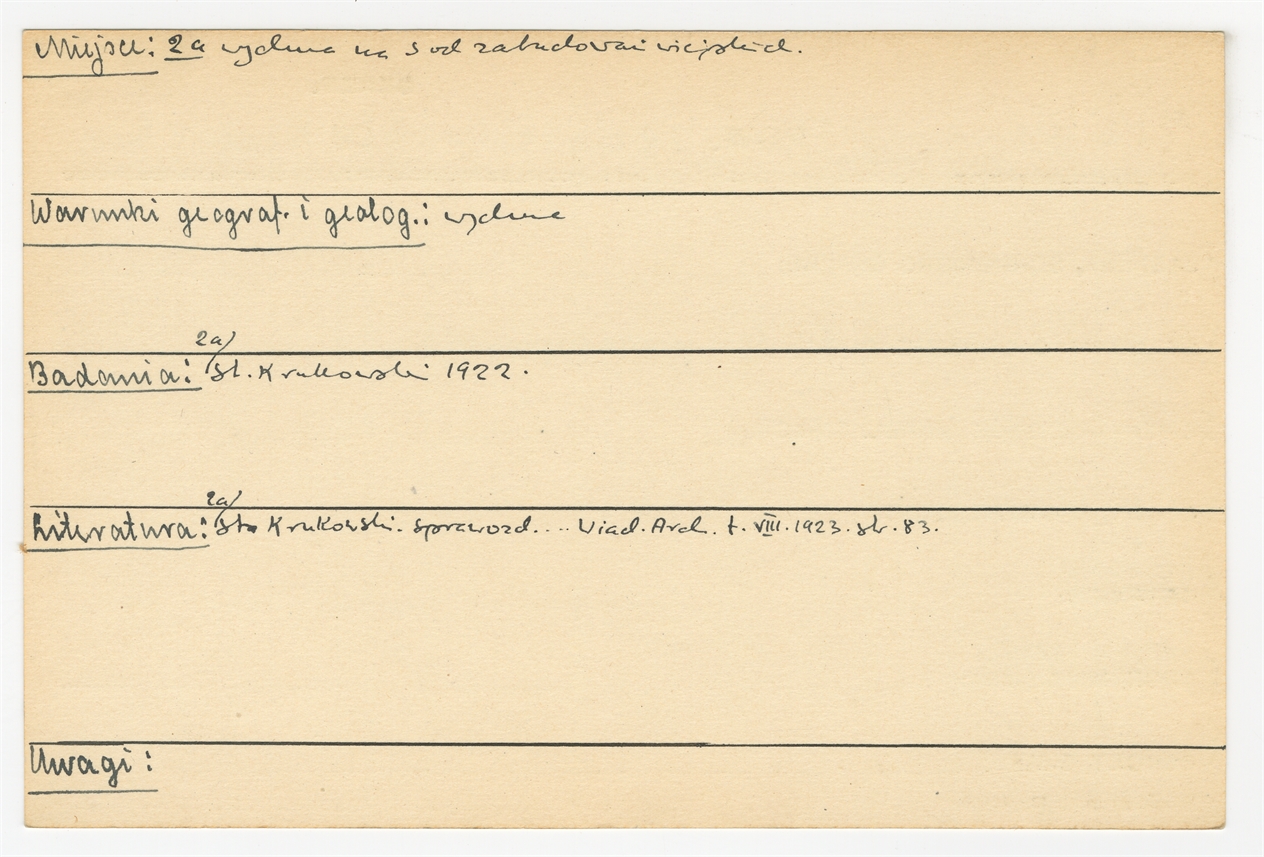 Miejsce: 2a wydma na S od zabudowań wiejskich.
Warunki geograf. i geolog.: wydma
2a/
Badania: St. Krukowski 1922.
2a/
Literatura: St. Krukowski. Sprawozd.... Wiad. Arch. t. VIII. 1923. str. 83.
Uwagi: